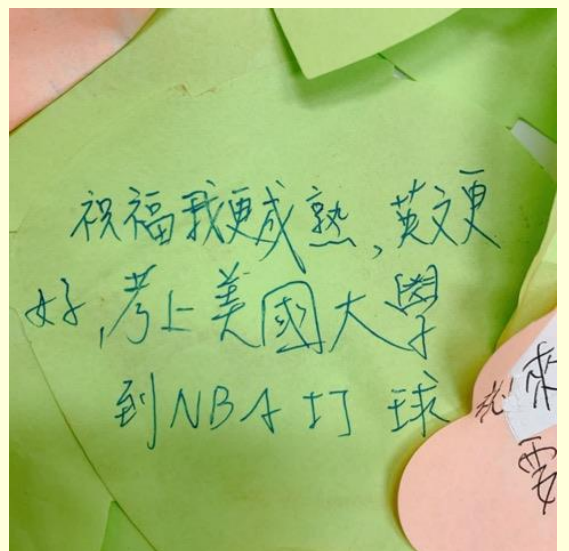 祝福我更成熟,英文更
好,考上美國大學
到NBA打球
來
要